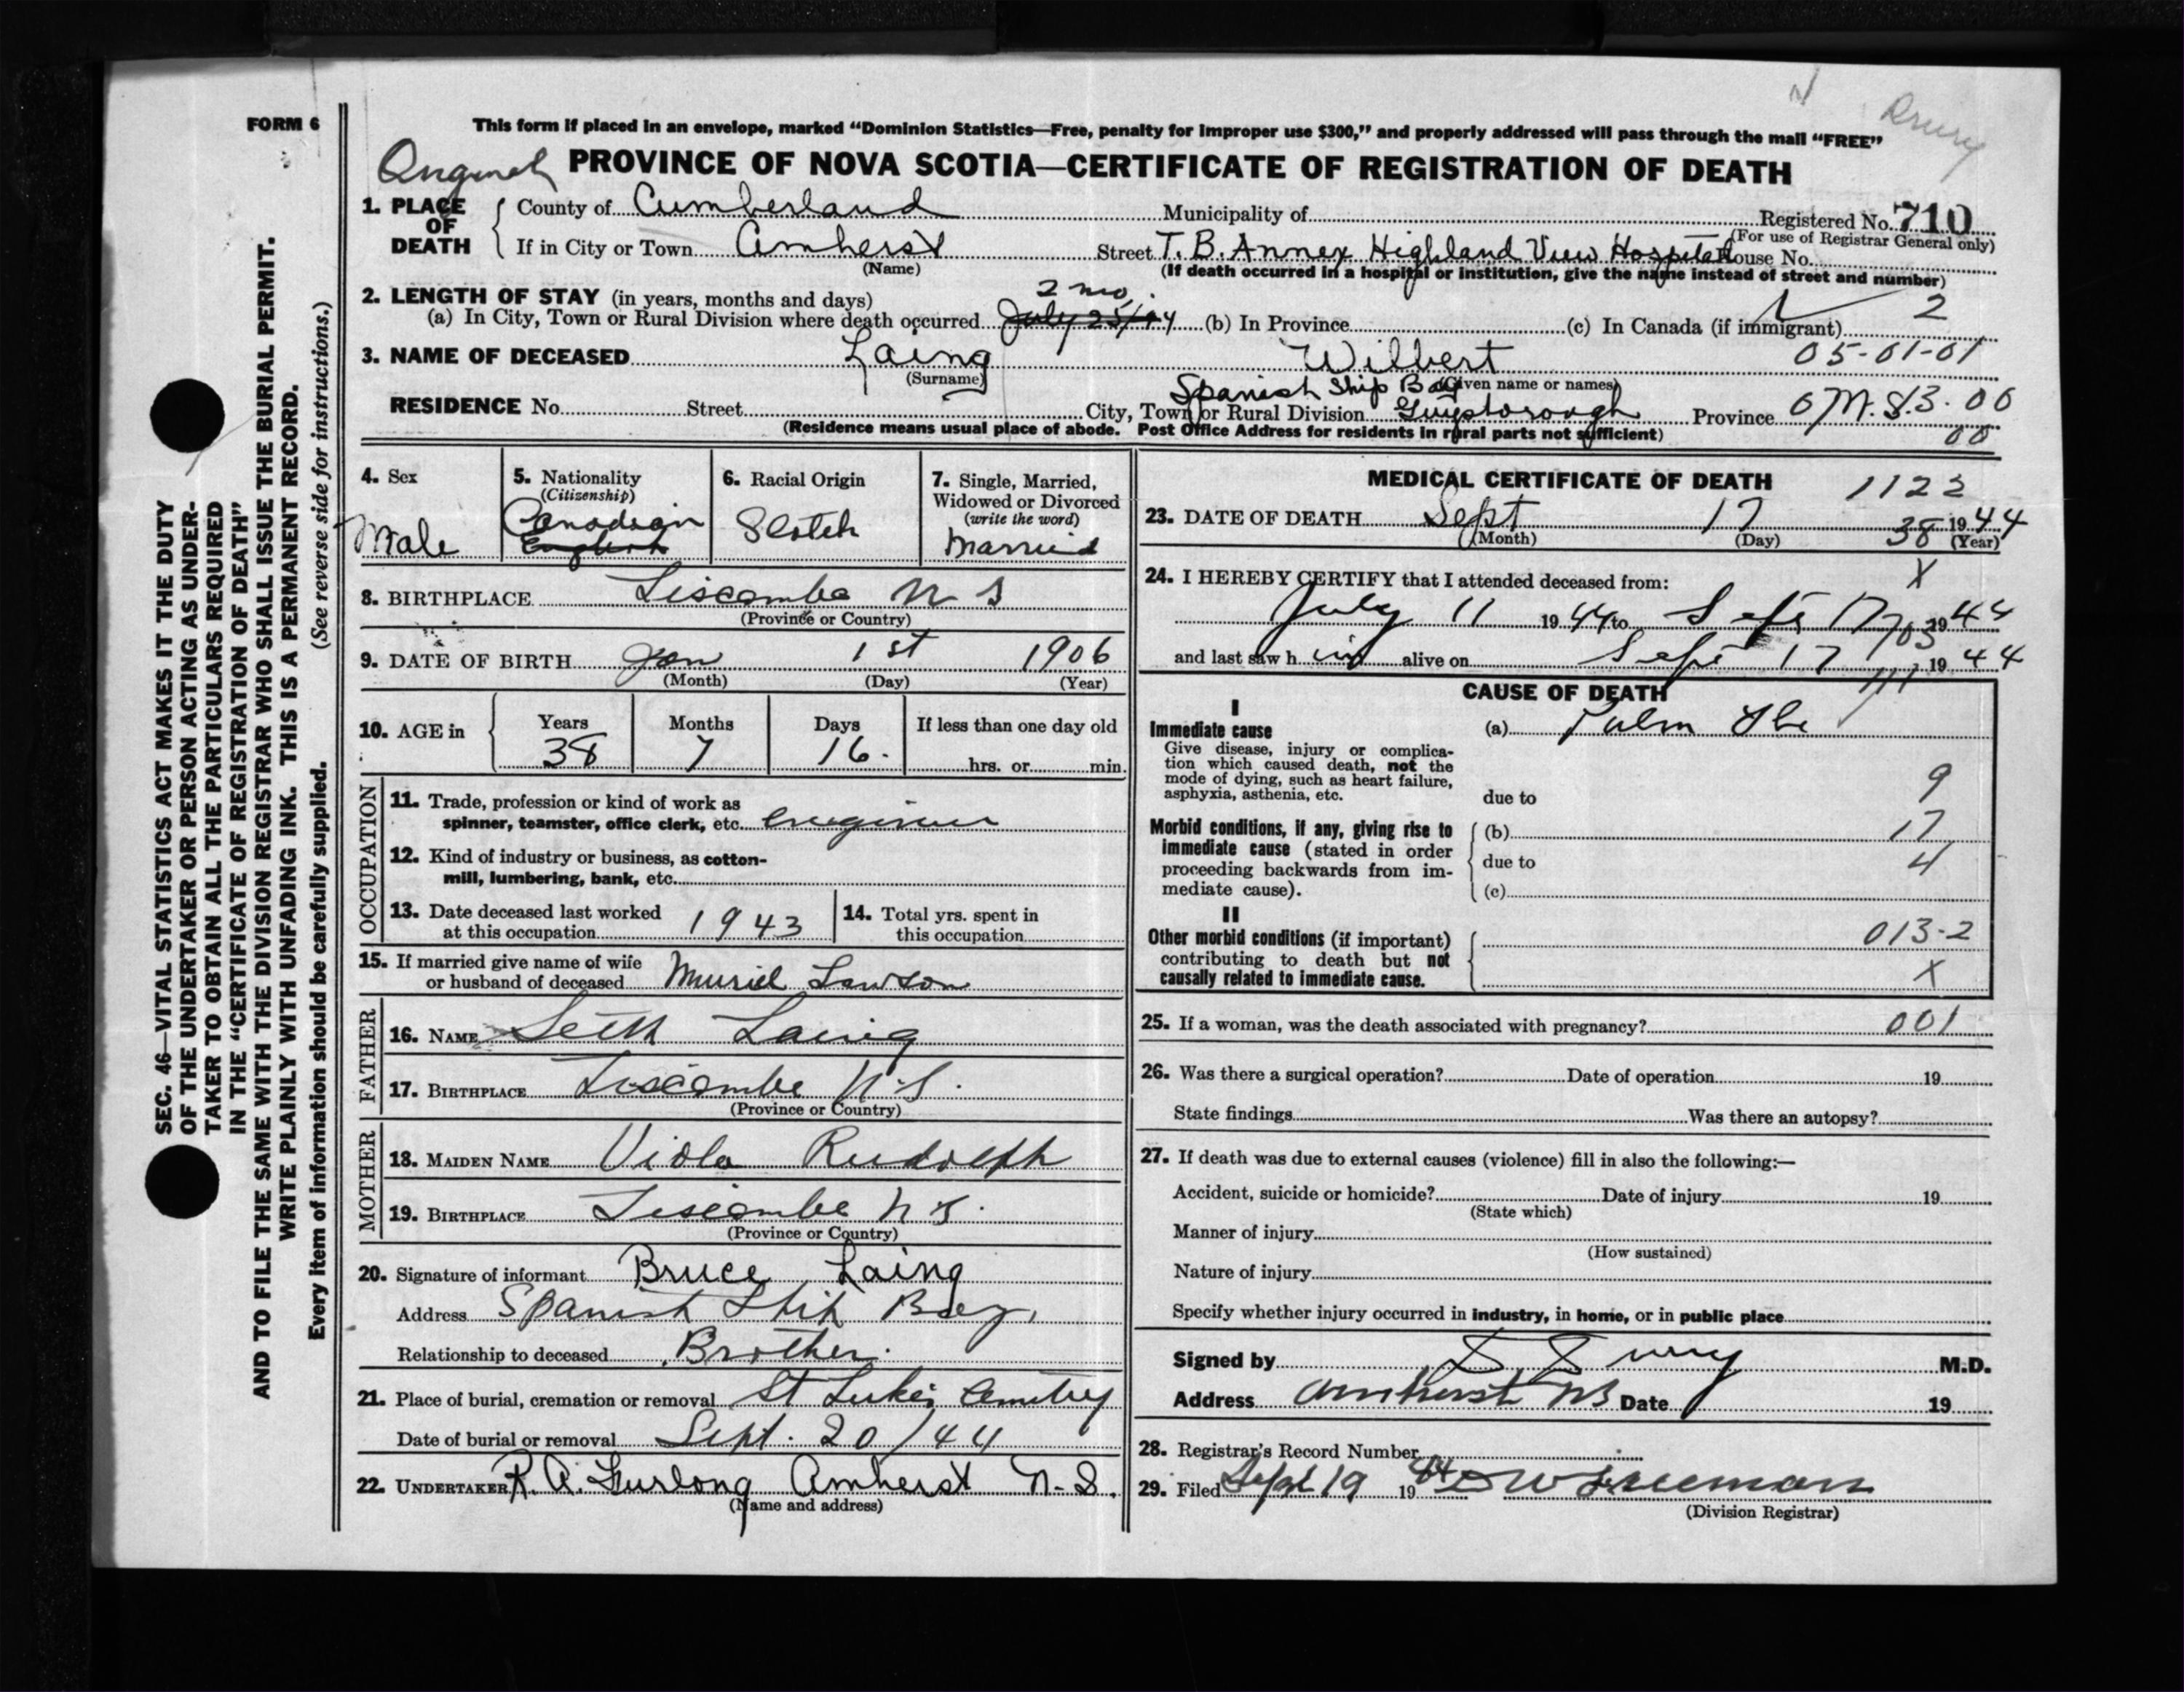 Drury
FORM 6
This form if placed in an envelope, marked “Dominion Statistics—Free, penalty for improper use $300,” and properly addressed will pass through the mail “FREE”
Original PROVINCE OF NOVA SCOTIA—CERTIFICATE OF REGISTRATION OF DEATH
1. PLACE OF DEATH County of Cumberland Municipality of Registered No. 710
(For use of Registrar General only)
If in City or Town Amherst Street T. B. Annex Highland View Hospital House No.
(Name) (If death occurred in a hospital or institution, give the name instead of street and number)
2. LENGTH OF STAY (in years, months and days) 2 mo. 2
(a) In City, Town or Rural Division where death occurred July 25/44 (b) In Province (c) In Canada (if immigrant)
3. NAME OF DECEASED Laing Wilbert 05-01-01
(Surname) (Given name or names)
Spanish Ship Bay
RESIDENCE No. Street City, Town or Rural Division Guysborough Province N.S. 13-00
(Residence means usual place of abode. Post Office Address for residents in rural parts not sufficient) 00
4. Sex 5. Nationality 6. Racial Origin 7. Single, Married,
(Citizenship) Widowed or Divorced
(write the word)
Male Canadian English Scotch Married
8. BIRTHPLACE Liscombe N S
(Province or Country)
9. DATE OF BIRTH Jan 1st 1906
(Month) (Day) (Year)
10. AGE in Years Months Days If less than one day old
38 7 16. hrs. or min.
OCCUPATION
11. Trade, profession or kind of work as
spinner, teamster, office clerk, etc. Engineer
12. Kind of industry or business, as cotton-
mill, lumbering, bank, etc.
13. Date deceased last worked 14. Total yrs. spent in
at this occupation 1943 this occupation
15. If married give name of wife
or husband of deceased Muriel Lawson
FATHER
16. NAME Seth Laing
17. BIRTHPLACE Liscombe N.S.
(Province or Country)
MOTHER
18. MAIDEN NAME Viola Rudolph
19. BIRTHPLACE Liscombe N S.
(Province or Country)
20. Signature of informant Bruce Laing
Address Spanish Ship Bay,
Relationship to deceased Brother.
21. Place of burial, cremation or removal St Lukes Cemetery
Date of burial or removal Sept. 20/44
22. UNDERTAKER R. A. Furlong Amherst N.S.
(Name and address)
MEDICAL CERTIFICATE OF DEATH 1122
23. DATE OF DEATH Sept 17 38 1944
(Month) (Day) (Year)
24. I HEREBY CERTIFY that I attended deceased from: X
July 11 1944 to Sept 17 1944
703
and last saw him alive on Sept 17 1944
CAUSE OF DEATH
I
Immediate cause (a) Pulm Tbc
Give disease, injury or complica-
tion which caused death, not the
mode of dying, such as heart failure,
asphyxia, asthenia, etc. due to 9
Morbid conditions, if any, giving rise to (b) 17
immediate cause (stated in order due to 4
proceeding backwards from im-
mediate cause). (c)
II
Other morbid conditions (if important) 013-2
contributing to death but not
causally related to immediate cause. X
25. If a woman, was the death associated with pregnancy? 001
26. Was there a surgical operation? Date of operation 19
State findings Was there an autopsy?
27. If death was due to external causes (violence) fill in also the following:—
Accident, suicide or homicide? Date of injury 19
(State which)
Manner of injury
(How sustained)
Nature of injury
Specify whether injury occurred in industry, in home, or in public place
Signed by D. Drury M.D.
Address Amherst NS Date 19
28. Registrar's Record Number
29. Filed Sept 19 1944
(Division Registrar)
SEC. 46—VITAL STATISTICS ACT MAKES IT THE DUTY
OF THE UNDERTAKER OR PERSON ACTING AS UNDER-
TAKER TO OBTAIN ALL THE PARTICULARS REQUIRED
IN THE “CERTIFICATE OF REGISTRATION OF DEATH”
AND TO FILE THE SAME WITH THE DIVISION REGISTRAR WHO SHALL ISSUE THE BURIAL PERMIT.
WRITE PLAINLY WITH UNFADING INK. THIS IS A PERMANENT RECORD.
Every item of information should be carefully supplied. (See reverse side for instructions.)